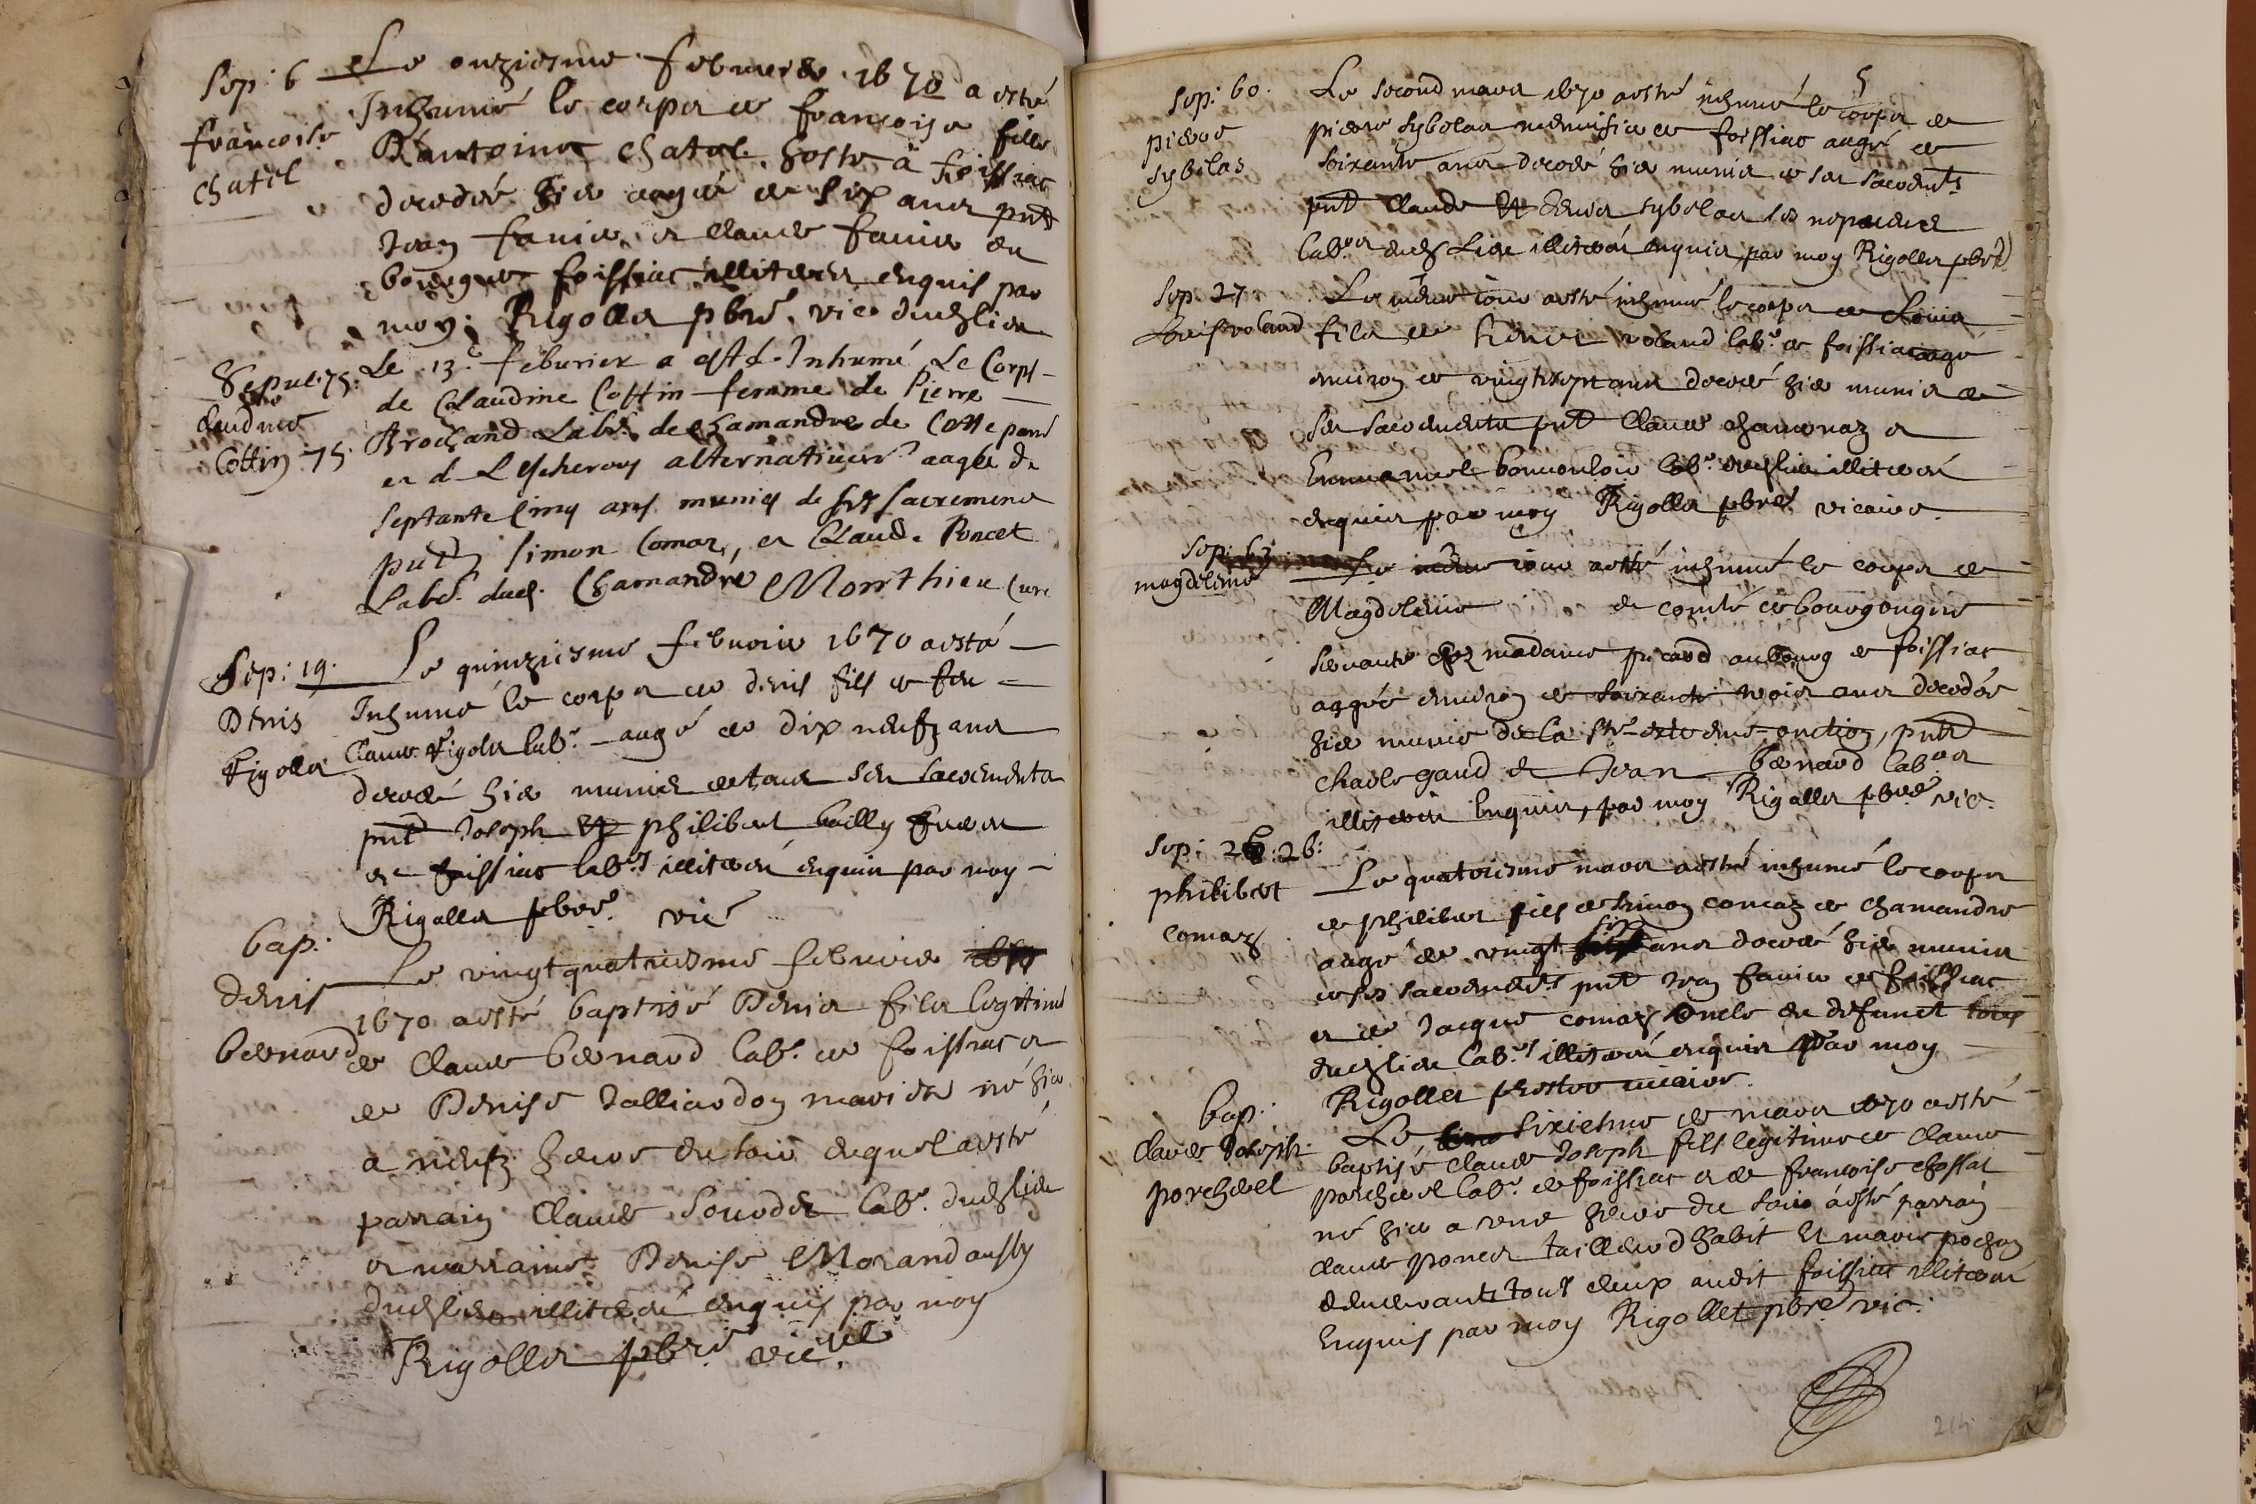 Sep: 6
francoise
chatel
Le onziesme febvrier 1670 a esté
Inhumé le corps de francoise fille
D'antoine chatel hoste à foissiac
decedée hier aagée de six ans pnt
Jean favier et claude favier du
bourg de foissiac illiterés enquis par
moy. Rigollet pbre. vic. dud lieu
Sepul: 75:
claudine
Cottin 75.
Le 13e feburier a esté Inhumé Le Corps
de Claudine Cottin femme de Pierre
Brochand Labr. de chamandre de
et de Lescheroux alternativemt aagée de
septante cinq ans munies de ses sacremens
pnts Simon Comar, et Claude Poncet
Labrs. dud. Chamandré Monthieu Curé
Sep: 19.
Denis
Rigollet
Le quinziesme febvrier 1670 a esté
Inhumé le corps de denis fils de feu
Claude Rigolet labr. aagé de dix neufz ans
decedé hier munis de tous ses sacrements
pnt Joseph et philibert bailly freres
de foissiac labrs illiterés enquis par moy
Rigollet pbre. vic
bap:
denis
bernard
Le vingt quatriesme febvrier
1670 a esté baptisé Denis fils legitime
de Claude bernard labr. de foissiac et
de Denise Jalliardon mariés né hier
a neufz heures du soir duquel a esté
parrain Claude labr. dud lieu
et marraine Denise Morand aussy
dud lieu illiterés enquis par moy
Rigollet pbre vic.
5
Sep: 60.
pierre
sybelas
Le second mars 1670 a esté inhumé le corps de
pierre sybelas menuisier de foissiac aagé de
soixante ans decedé hier munis de ses sacrents
pnt Claude et Denis sybelas ses nepveux
labrs dud Lieu illiterés enquis par moy Rigollet pbre
Sep: 27
Louis roland
Le même jour a esté inhumé le corps de Louis
fils de roland labr. de foissiac aagé
environ de vingt sept ans decedé hier munis de
ses sacrements pnt Claude chamonaz et
Emmanuel labr. dud lieu illiterés
enquis par moy Rigollet pbre vicaire.
Sep: 63
magdeleine
Le même jour a esté inhumé le corps de
Magdeleine de comté de bourgongne
servante chez madame picard au bourg de foissiac
aagée environ de soixante trois ans decedée
hier munie de la ste extreme onction, pnts
charle gaud et Jean bernard labrs
illiterés Enquis, par moy Rigollet pbre vic.
Sep: 26:
philibert
comaz
Le quatriesme mars a esté inhumé le corps
de philibert fils de simon comaz de chamandre
aagé de vingt six ans decedé hier munis
de ses sacrements pnt Jean favier de foissiac
et de Jacque comaz oncle du defunct tous
dud lieu labrs illiterés enquis Par moy
Rigollet prestre vicaire.
bap:
Claude Joseph
porcherel
Le sixiesme de mars 1670 a esté
baptisé Claude Joseph fils legitime de claude
porcherel labr. de foissiac et de francoise chossat
né hier a une heure du soir a esté parrain
claude poncet tailleur d habit Et marie pochon
demeurants tous deux audit foissiac illiterés
Enquis par moy Rigollet pbre vic.
214